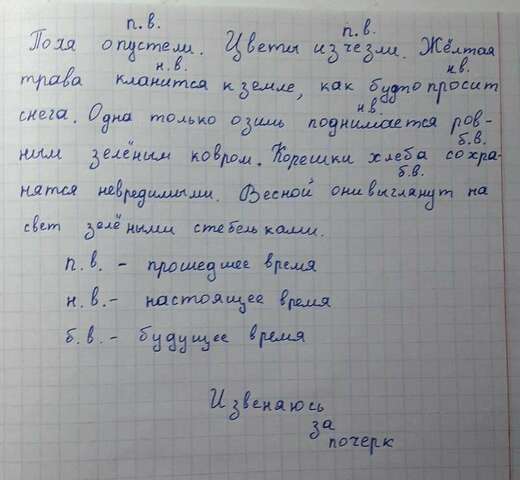 п.в. п.в.
Поля опустели. Цветы изчезли. Жёлтая
н.в. н.в.
трава кланится к земле, как будто просит
н.в.
снега. Одна только озимь поднимается ров-
б.в.
ным зелёным ковром. Корешки хлеба сохра-
б.в.
нятся невредимыми. Весной они выглянут на
свет зелёными стебельками.
п.в. - прошедшее время
н.в. - настоящее время
б.в. - будущее время
Извеняюсь
за
почерк